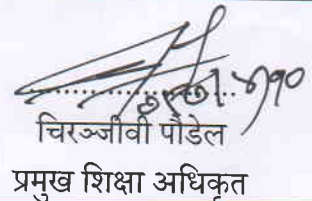 चिरञ्जीवी पौडेल
प्रमुख शिक्षा अधिकृत